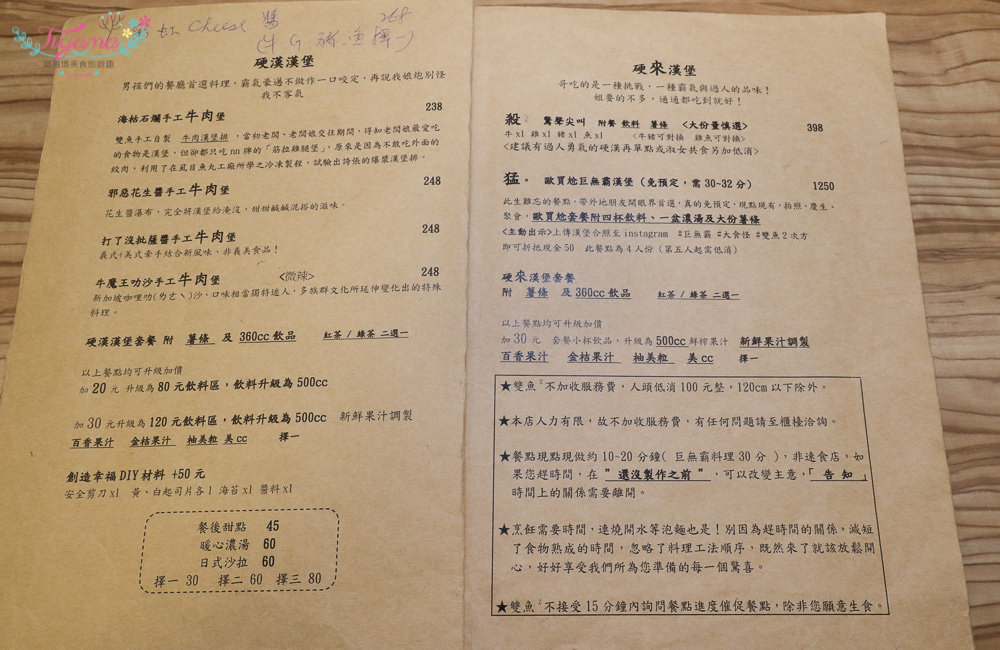 Tiyama
虛雅媽美食旅遊趣
Cheese 醬 268
(牛 G. 豬. 魚 擇一)
硬漢漢堡
男孩們的餐廳首選料理，霸氣豪邁不做作一口咬定，再說我娘炮別怪
我不客氣
海枯石爛手工牛肉堡 238
雙魚手工自製 牛肉漢堡排，當初老闆、老闆娘交往期間，得知老闆娘最愛吃
的食物是漢堡，但卻都只吃 nn 牌的「筋拉雞腿堡」，原來是因為不敢吃外面的
絞肉，利用了在虱目魚丸工廠所學之冷凍製程，試驗出誇張的爆漿漢堡排。
邪惡花生醬手工牛肉堡 248
花生醬瀑布，完全將漢堡給淹沒，甜甜鹹鹹混搭的滋味。
打了沒批薩醬手工牛肉堡 248
義式+美式牽手結合新風味，非義美食品！
牛魔王叻沙手工牛肉堡 <微辣> 248
新加坡咖哩叻(ㄌㄜˋ)沙，口味相當獨特迷人，多族群文化所延伸變化出的特殊
料理。
硬漢漢堡套餐 附 薯條 及 360cc 飲品 紅茶 / 綠茶 二選一
以上餐點均可升級加價
加 20 元 升級為 80 元飲料區，飲料升級為 500cc
加 30 元升級為 120 元飲料區，飲料升級為 500cc 新鮮果汁調製
百香果汁 金桔果汁 柚美粒 美 cc 擇一
創造幸福 DIY 材料 +50 元
安全剪刀 x1 黃、白起司片各 1 海苔 x1 醬料 x1
餐後甜點 45
暖心濃湯 60
日式沙拉 60
擇一 30 擇二 60 擇三 80
硬來漢堡
哥吃的是一種挑戰，一種霸氣與過人的品味！
姐要的不多，通通都吃到就好！
殺. 驚聲尖叫 附餐 飲料 薯條 <大份量慎選> 398
牛 x1 雞 x1 豬 x1 魚 x1 <牛豬可對換 雞魚可對換>
<建議有過人勇氣的硬漢再單點或淑女共食另加低消>
猛. 歐買尬巨無霸漢堡（免預定，需 30~32 分） 1250
此生難忘的餐點，帶外地朋友開眼界首選，真的免預定，現點現有，拍照、慶生、
聚會，歐買尬套餐附四杯飲料、一盆濃湯及大份薯條
<主動出示>上傳漢堡合照至 instagram #巨無霸 #大食怪 #雙魚 2 次方
即可折抵現金 50 此餐點為 4 人份（第五人起需低消）
硬來漢堡套餐
附 薯條 及 360cc 飲品 紅茶 / 綠茶 二選一
以上餐點均可升級加價
加 30 元 套餐小杯飲品、升級為 500cc 鮮榨果汁 新鮮果汁調製
百香果汁 金桔果汁 柚美粒 美 cc 擇一
★雙魚²不加收服務費，人頭低消 100 元整，120cm 以下除外。
★本店人力有限，故不加收服務費，有任何問題請至櫃檯洽詢。
★餐點現點現做約 10~20 分鐘( 巨無霸料理 30 分 )，非速食店，如
果您趕時間，在 ”還沒製作之前”，可以改變主意，「 告 知 」
時間上的關係需要離開。
★烹飪需要時間，連燒開水等泡麵也是！別因為趕時間的關係，減短
了食物熟成的時間，忽略了料理工法順序，既然來了就該放鬆開
心，好好享受我們所為您準備的每一個驚喜。
★雙魚²不接受 15 分鐘內詢問餐點進度催促餐點，除非您願意生食。